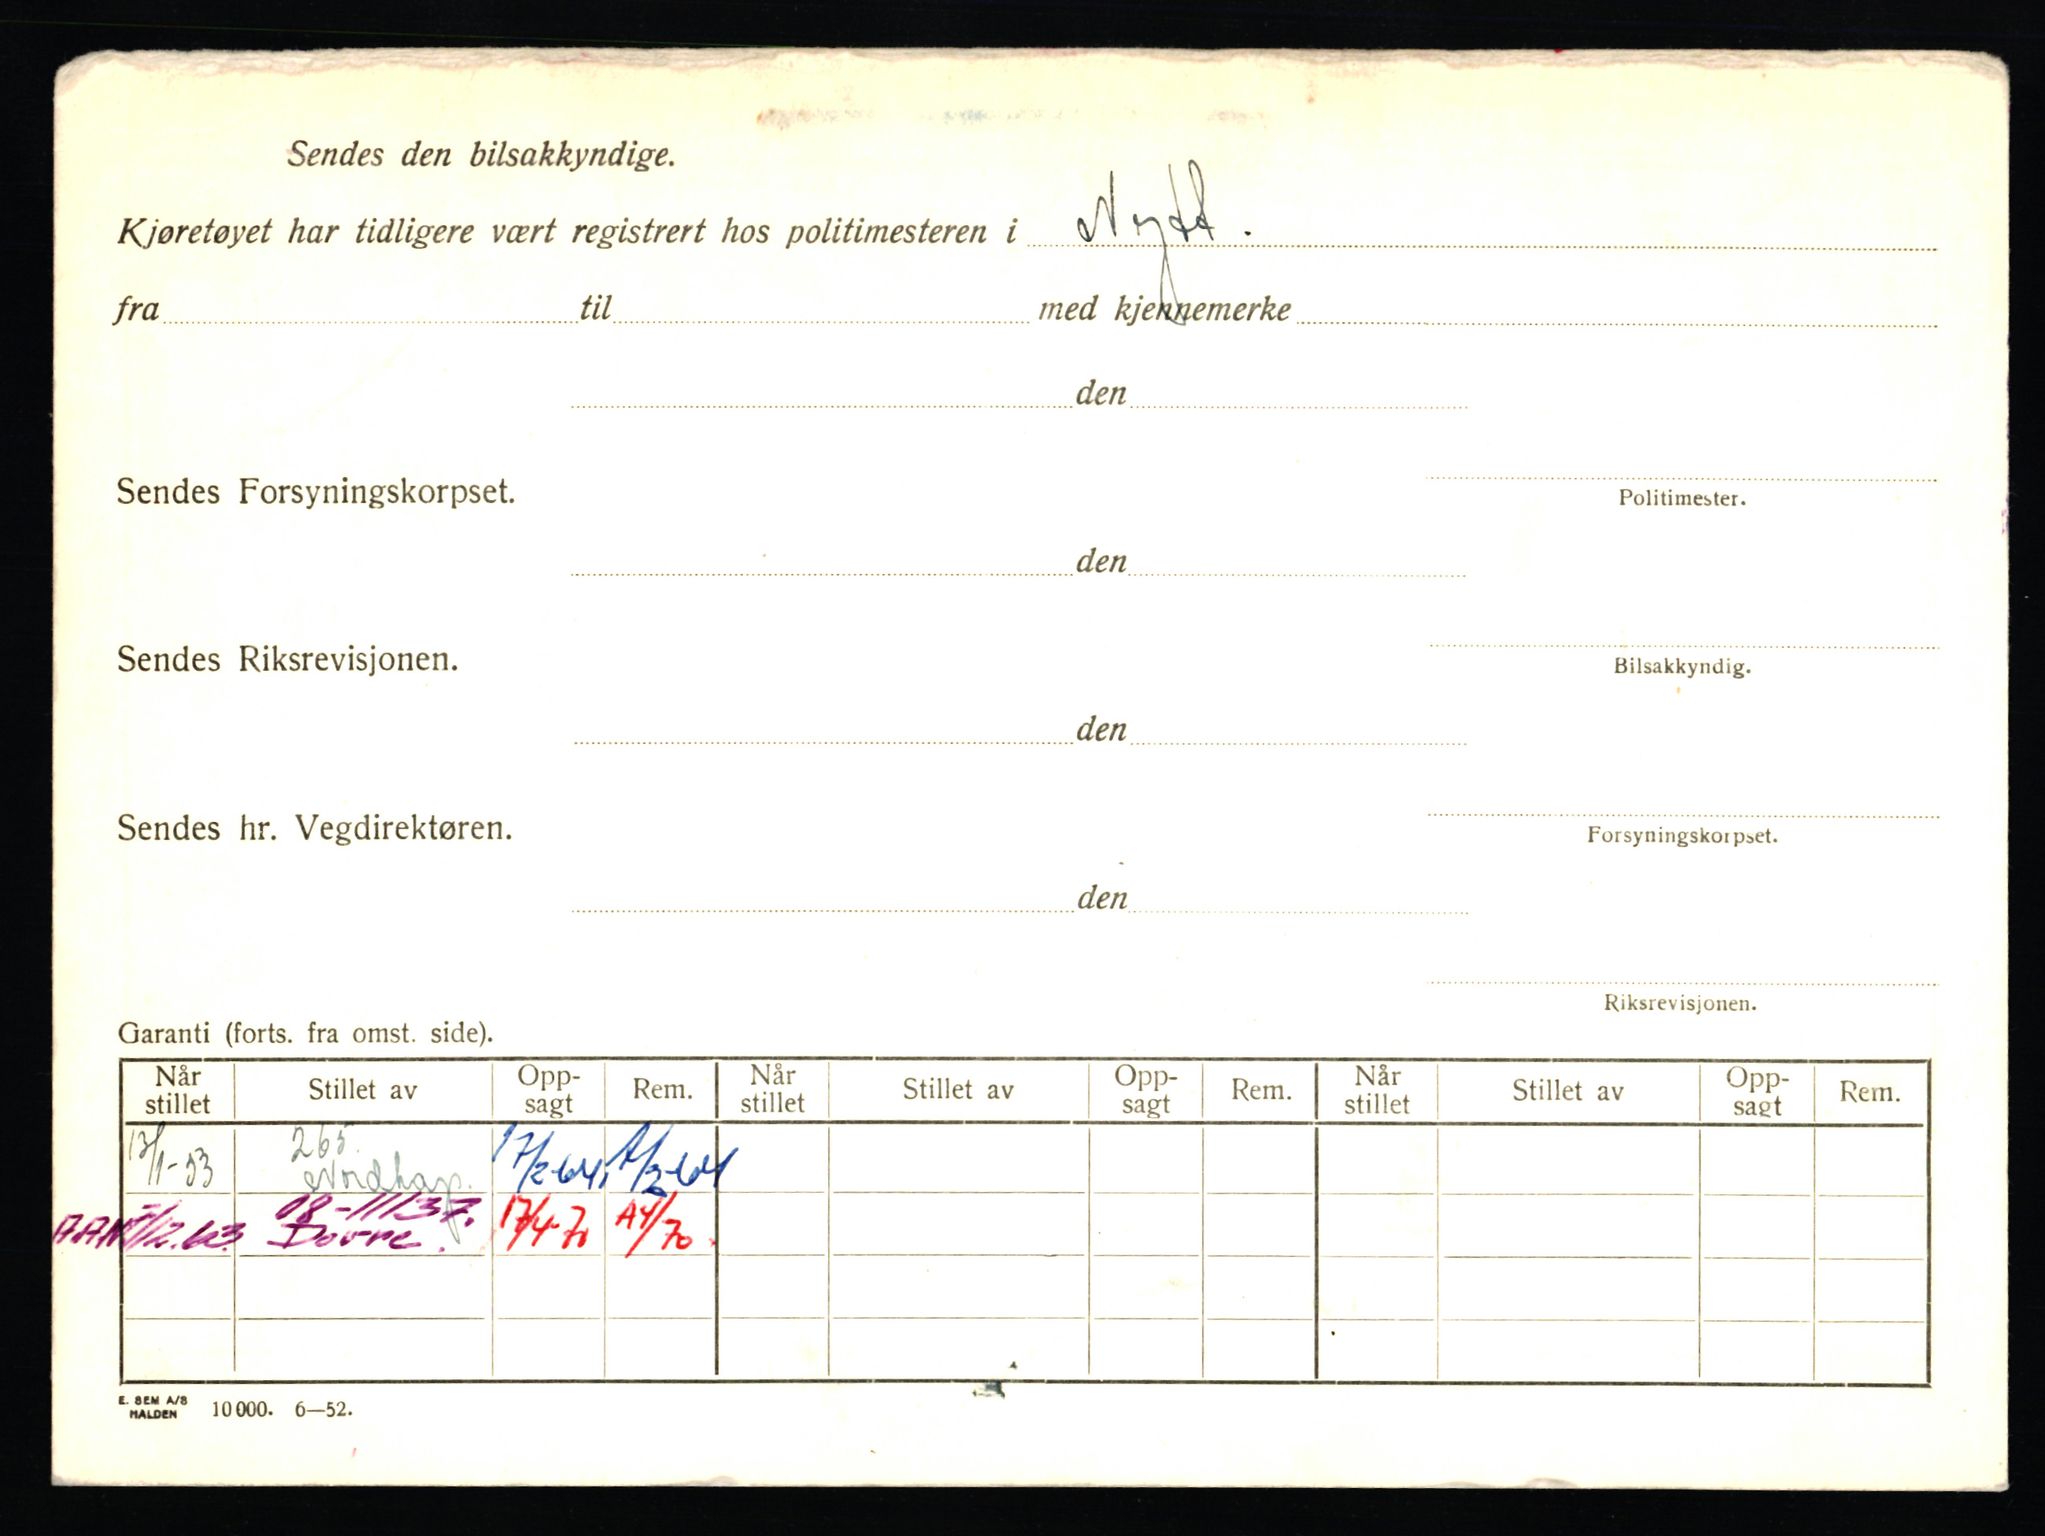 Sendes den bilsakkyndige.
Kjøretøyet har tidligere vært registrert hos politimesteren i Nytt.
fra til med kjennemerke
den
Sendes Forsyningskorpset.
Politimester.
den
Sendes Riksrevisjonen.
Bilsakkyndig.
den
Sendes hr. Vegdirektøren.
Forsyningskorpset.
den
Riksrevisjonen.
Garanti (forts. fra omst. side).
Når stillet Stillet av Opp-sagt Rem. Når stillet Stillet av Opp-sagt Rem. Når stillet Stillet av Opp-sagt Rem.
13/1-53 265. Nordkap. 17/2-64
08-11137. Dovre. 17/4-70 A4/70
E. SEM A/S
HALDEN 10000. 6—52.